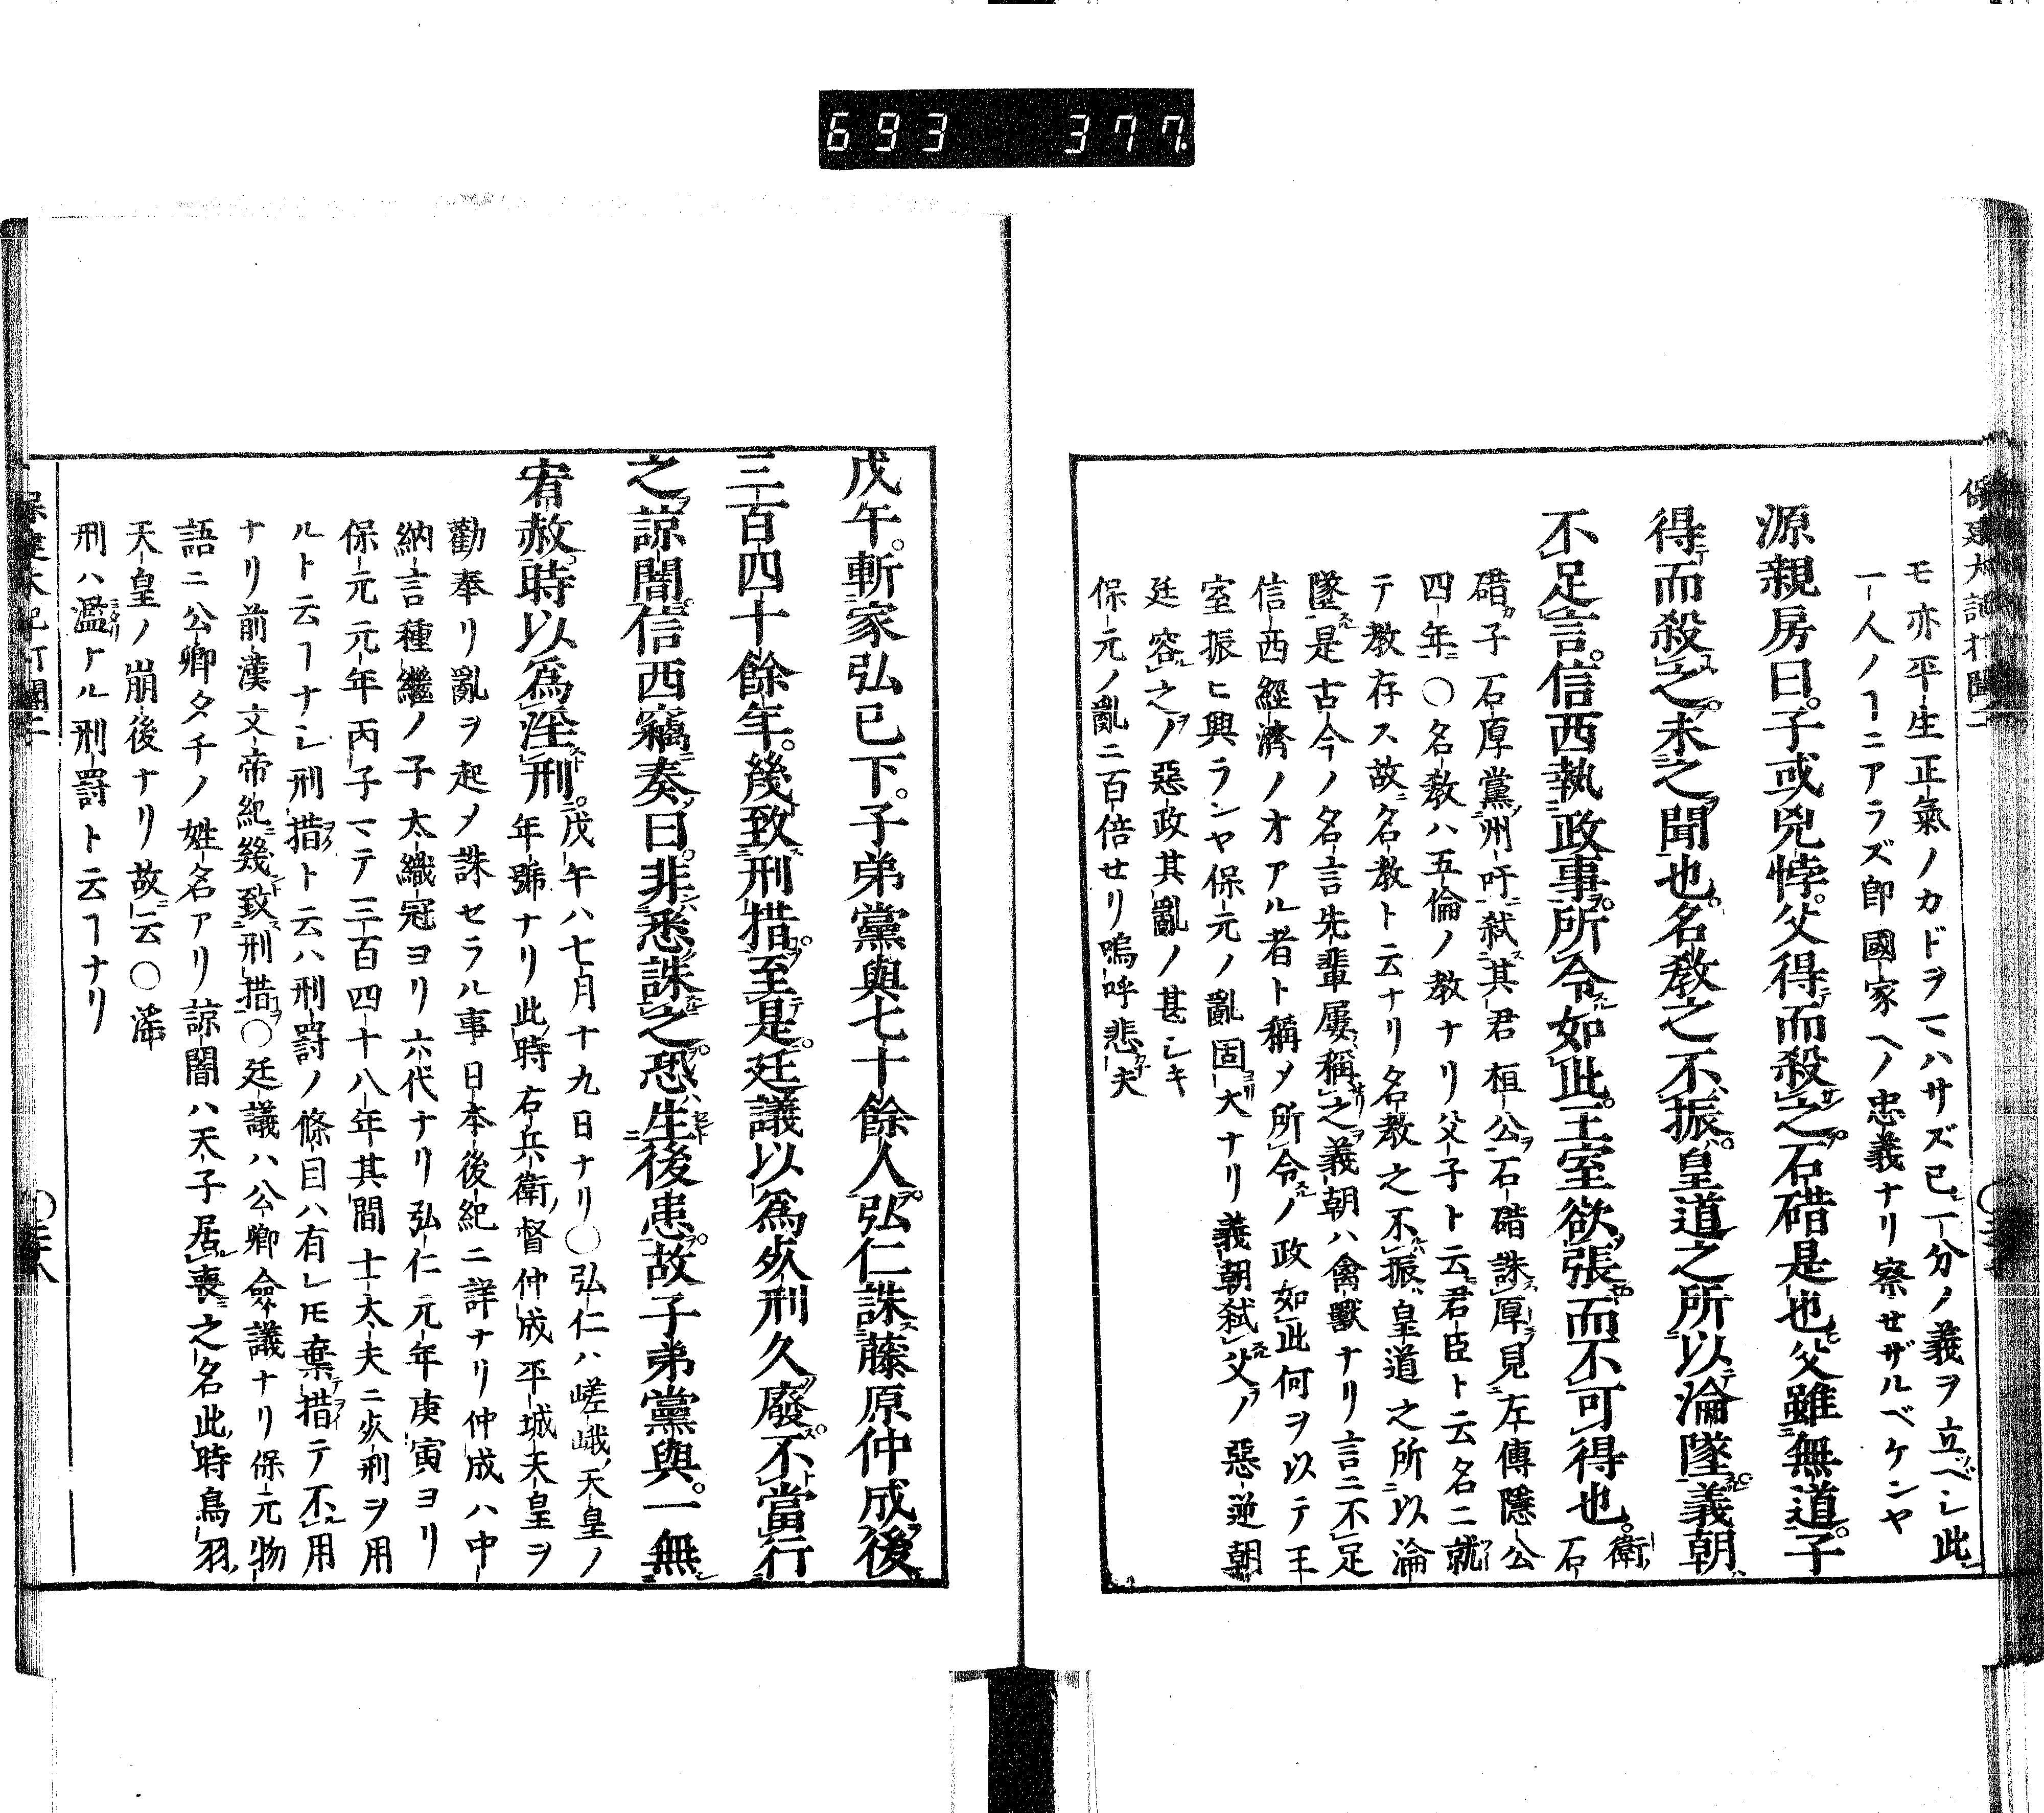 693 377
保建大記打聞二
モ亦平生正氣ノカドヲマハサズ已一分ノ義ヲ立ベシ此
一人ノヿニアラズ即國家ヘノ忠義ナリ察セザルベケンヤ
源親房曰。子或兇悖。父得而殺之。石碏是也。父雖無道。子
得而殺之。未之聞也。名教之不振。皇道之所以淪墜。義朝
不足言。信西執政事。所令如此。王室欲張而不可得也。衛石
碏子石厚黨州吁弑其君桓公石碏誅厚見左傳隱公
四年○名教ハ五倫ノ教ナリ父子ト云君臣ト云名ニ就
テ教存ス故名教ト云ナリ名教之不振皇道之所以淪
墜是古今ノ名言先輩屢稱之義朝ハ禽獸ナリ言ニ不足
信西經濟ノオアル者ト稱メ所令ノ政如此何ヲ以テ王
室振ヒ興ランヤ保元ノ亂固大ナリ義朝弑父ノ惡逆朝
廷容之ノ惡政其亂ノ甚シキ
保元ノ亂ニ百倍セリ嗚呼悲夫
戊午。斬家弘已下。子弟黨與七十餘人。弘仁誅藤原仲成後
三百四十餘年。幾致刑措。至是。廷議以爲死刑久廢。不當行
之諒闇。信西竊奏曰。非悉誅之。恐生後患。故子弟黨與。一無
宥赦。時以爲淫刑。戊午ハ七月十九日ナリ○弘仁ハ嵯峨天皇ノ
年號ナリ此時右兵衛督仲成平城天皇ヲ
勸奉リ亂ヲ起メ誅セラル事日本後紀ニ詳ナリ仲成ハ中
納言種繼ノ子太織冠ヨリ六代ナリ弘仁元年庚寅ヨリ
保元元年丙子マテ三百四十八年其間士太夫ニ死刑ヲ用
ルト云ヿナシ刑措ト云ハ刑罸ノ條目ハ有レㇳモ棄措テ不用
ナリ前漢文帝紀幾致刑措○廷議ハ公卿僉議ナリ保元物
語ニ公卿タチノ姓名アリ諒闇ハ天子居喪之名此時鳥羽
天皇ノ崩後ナリ故云○淫
刑ハ濫ナル刑罸ト云ヿナリ